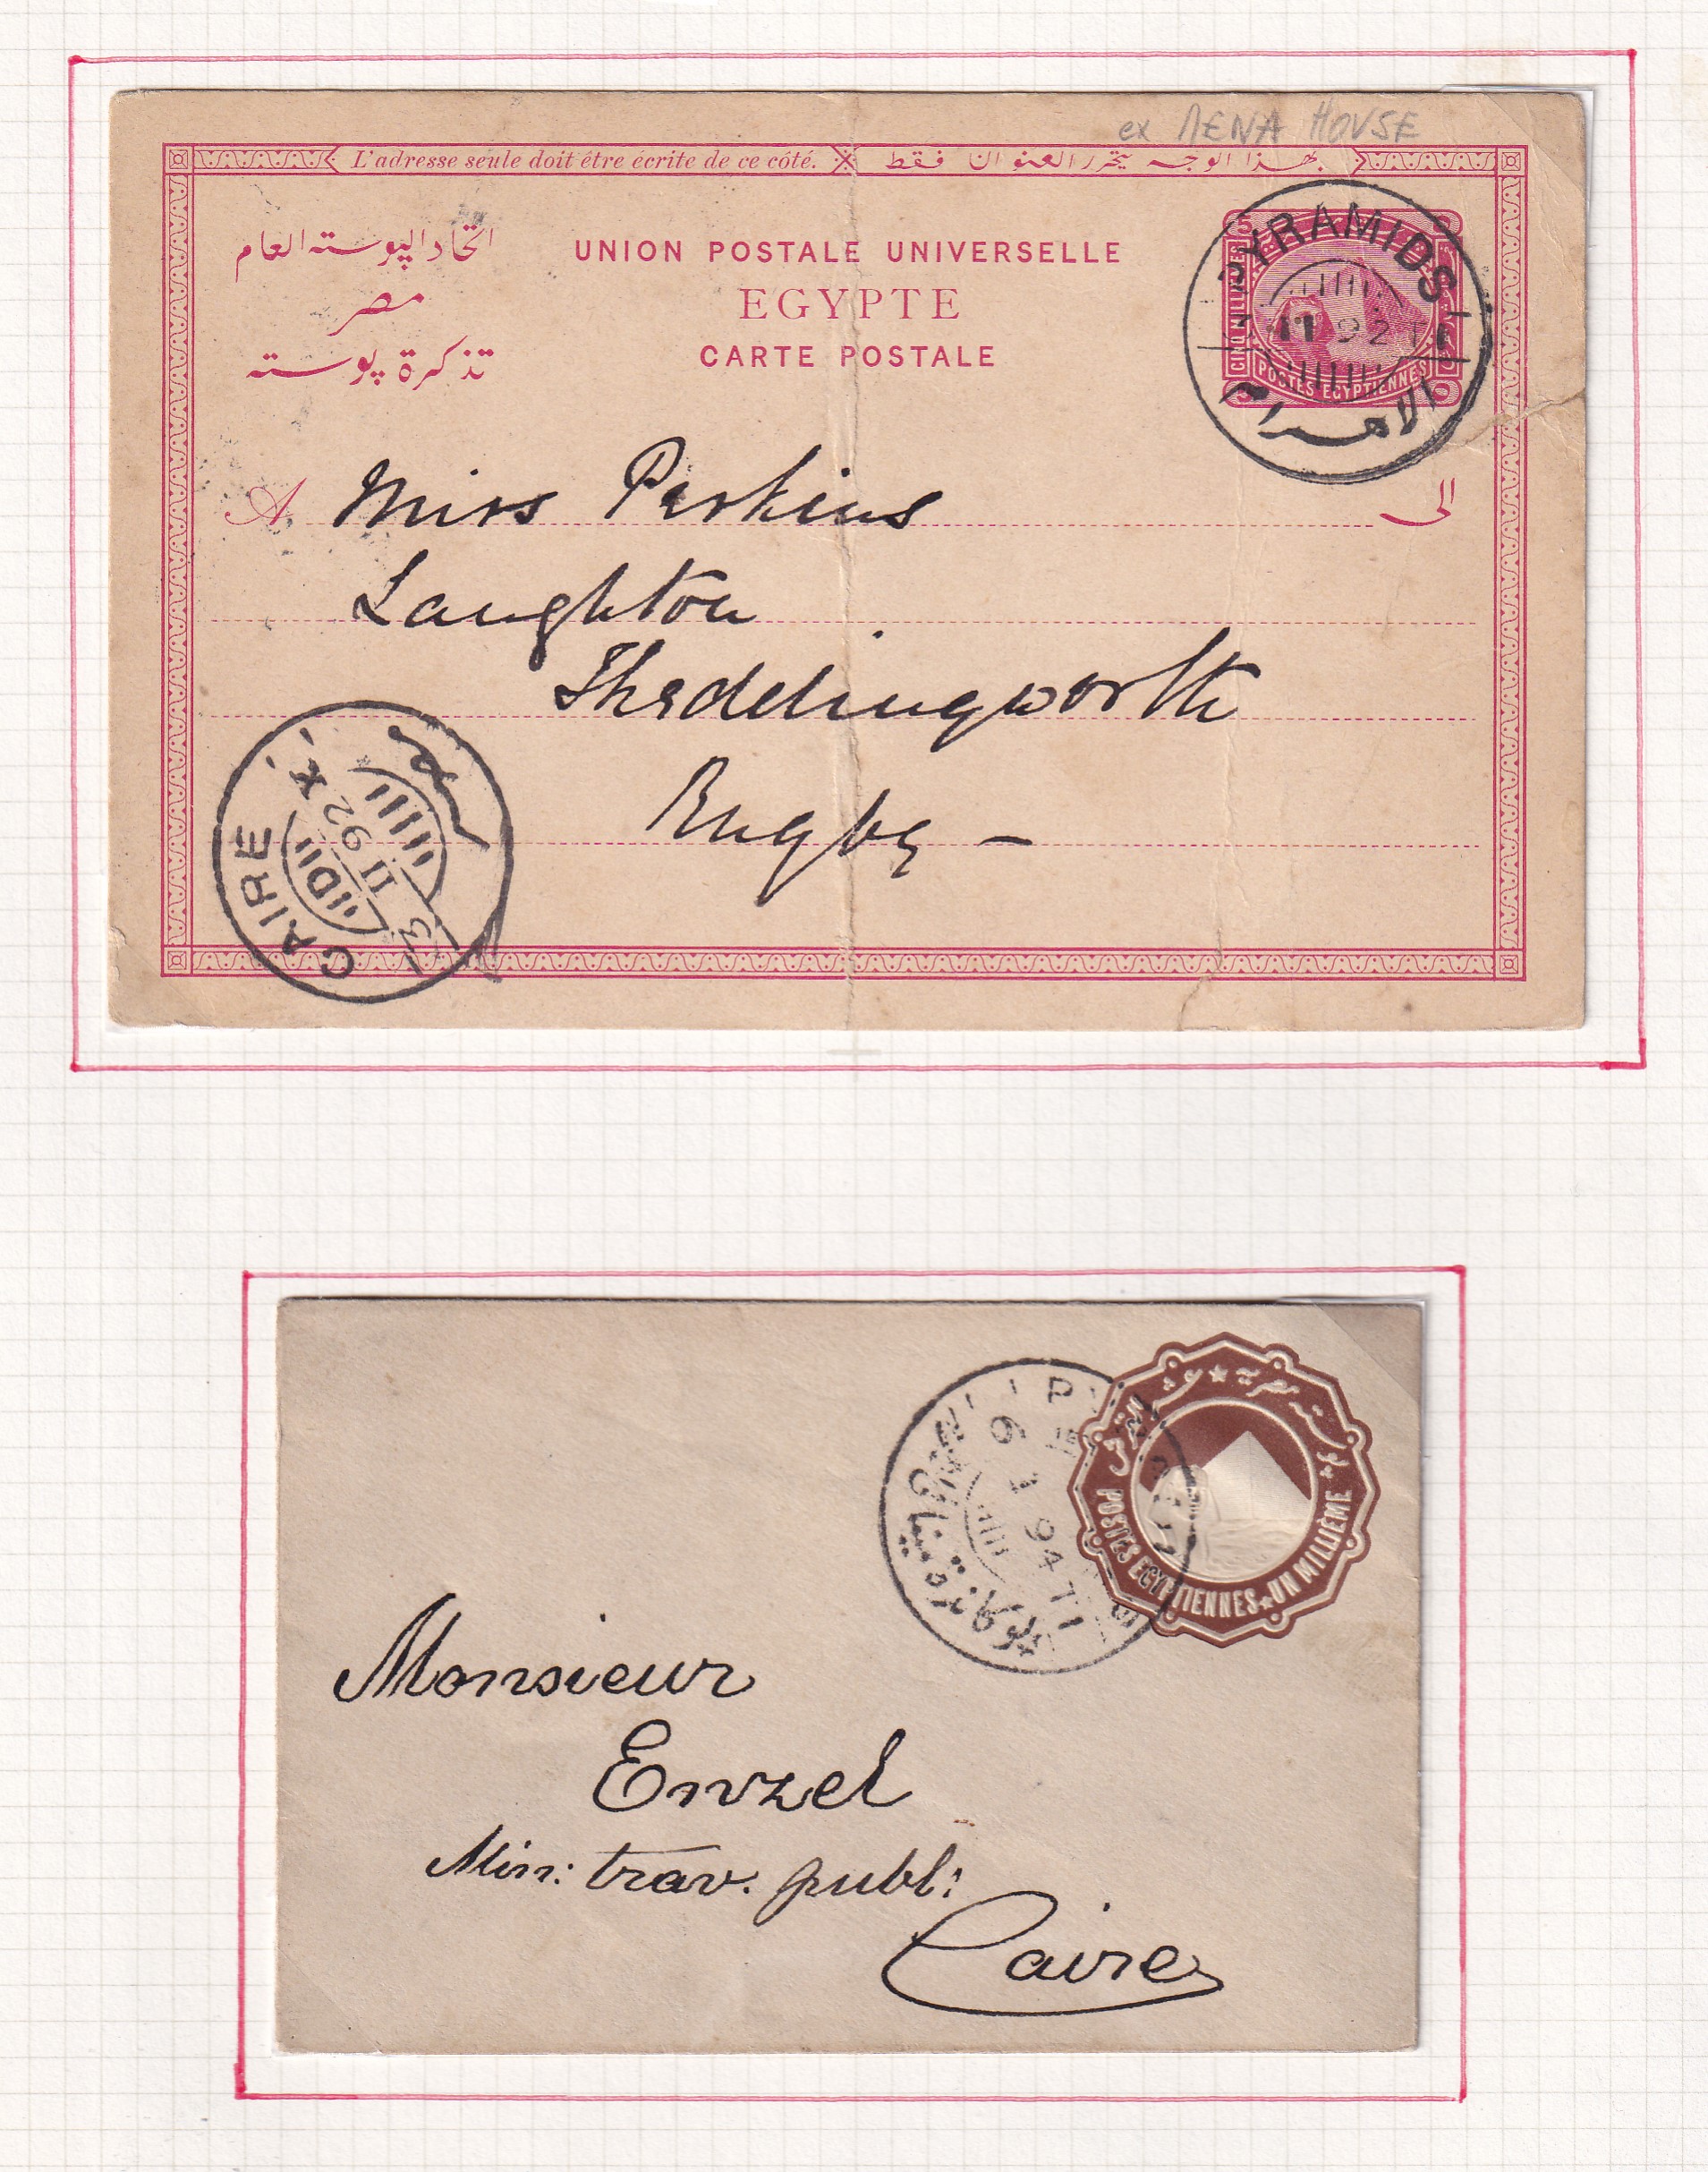 ex MENA HOUSE
L'adresse seule doit être écrite de ce côté. بهذا الوجه يتحرر العنوان فقط
اتحاد البوسته العام
مصر
تذكرة بوسته
UNION POSTALE UNIVERSELLE
EGYPTE
CARTE POSTALE
PYRAMIDS
92 T
الاهرام
5
CINQ MILLIEMES
POSTES EGYPTIENNES
A Miss Perkins الى
Laughton
Thedelingworth
Rugby –
CAIRE
13 II 92
مصر
6 I 94 TI
POSTES EGYPTIENNES ★ UN MILLIEME
Monsieur
Enzel
Min: trav. publ:
Caire